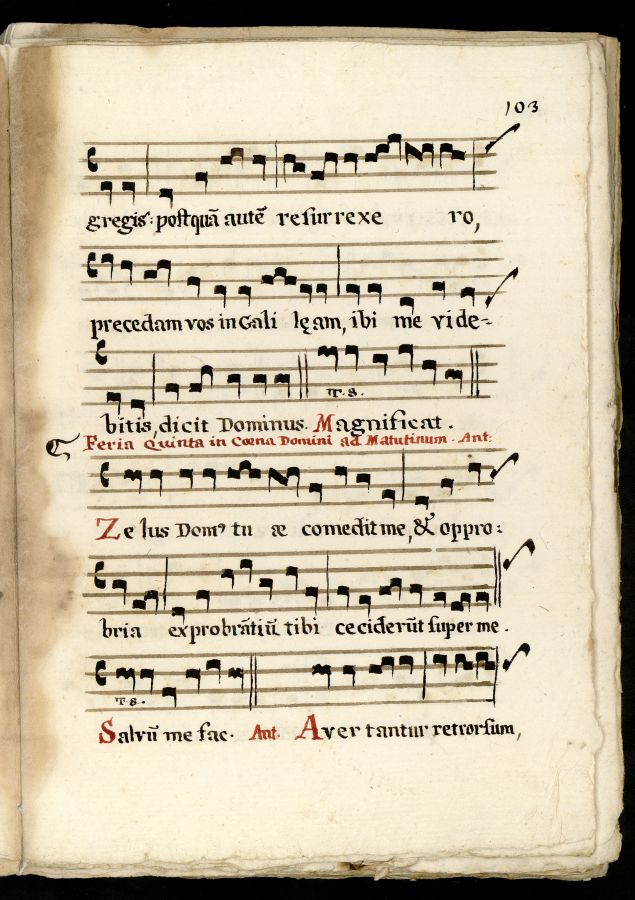 103
gregis: postquā autē resurrexe ro,
precedam vos in Gali lęam, ibi me vide-
T. 8.
bitis, dicit Dominus. Magnificat.
Feria Quinta in Cœna Domini ad Matutinum. Ant:
Zelus Domꝰ tu æ comedit me, & oppro:
bria exprobrātiū tibi ceciderūt super me.
T. 8.
Salvū me fac. Ant. Aver tantur retrorsum,